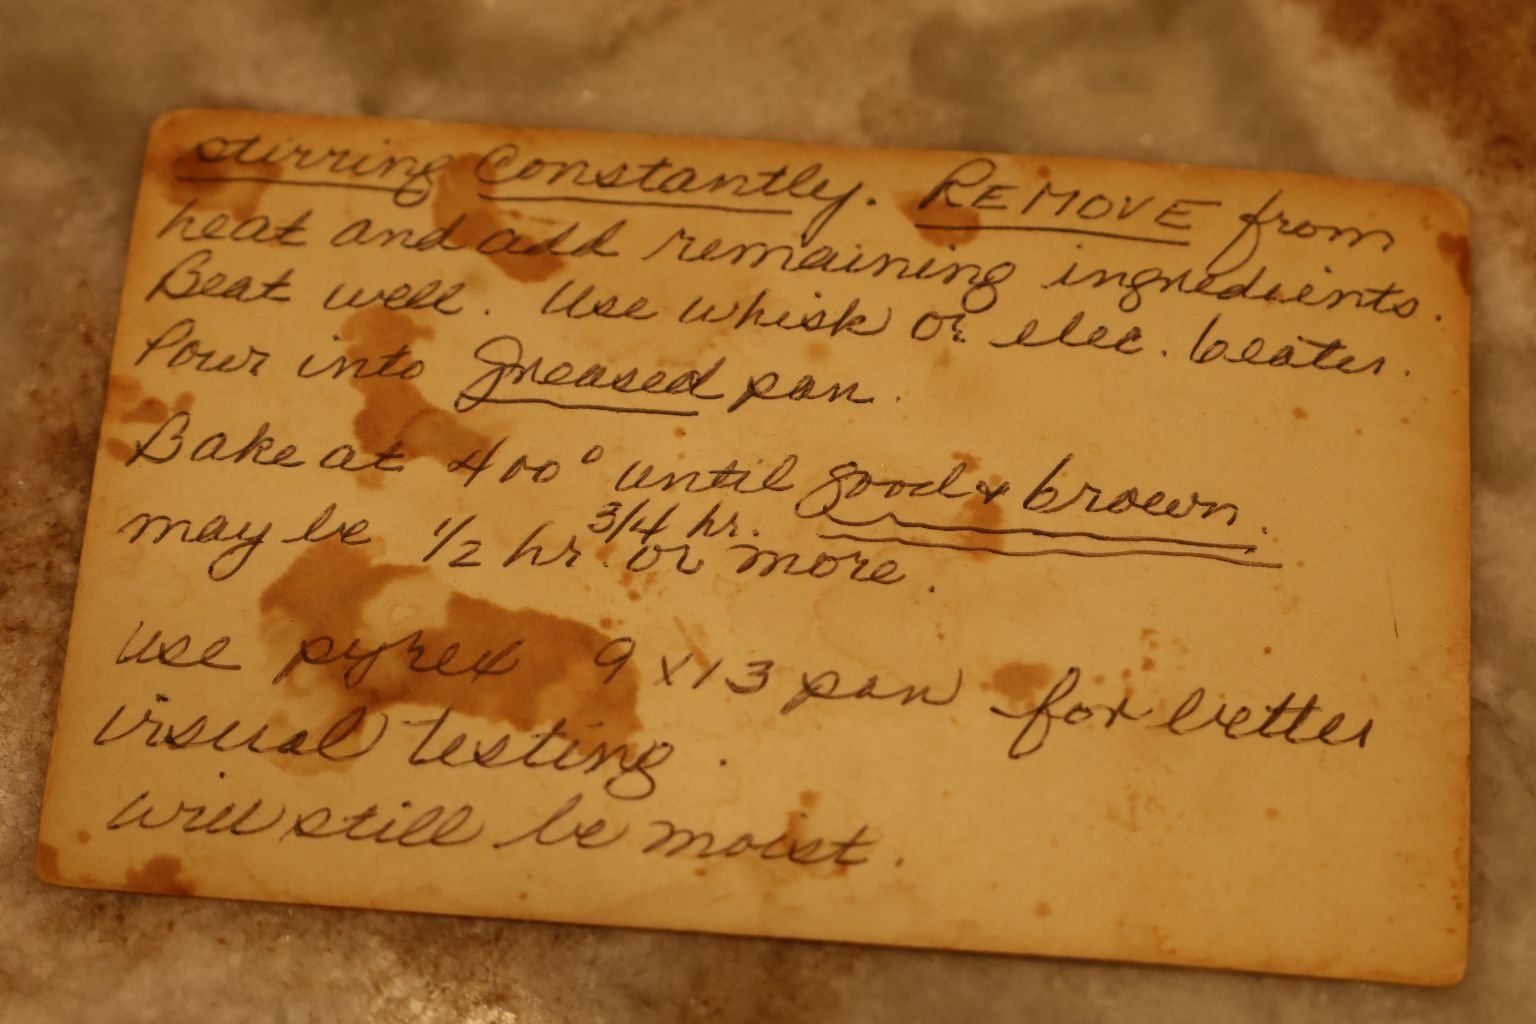 stirring Constantly. REMOVE from
heat and add remaining ingredients.
Beat well. Use whisk or elec. beater.
Pour into greased pan.
Bake at 400° until good & brown.
may be 1/2 hr. 3/4 hr. or more.
Use pyrex 9 x 13 pan for better
visual testing.
will still be moist.